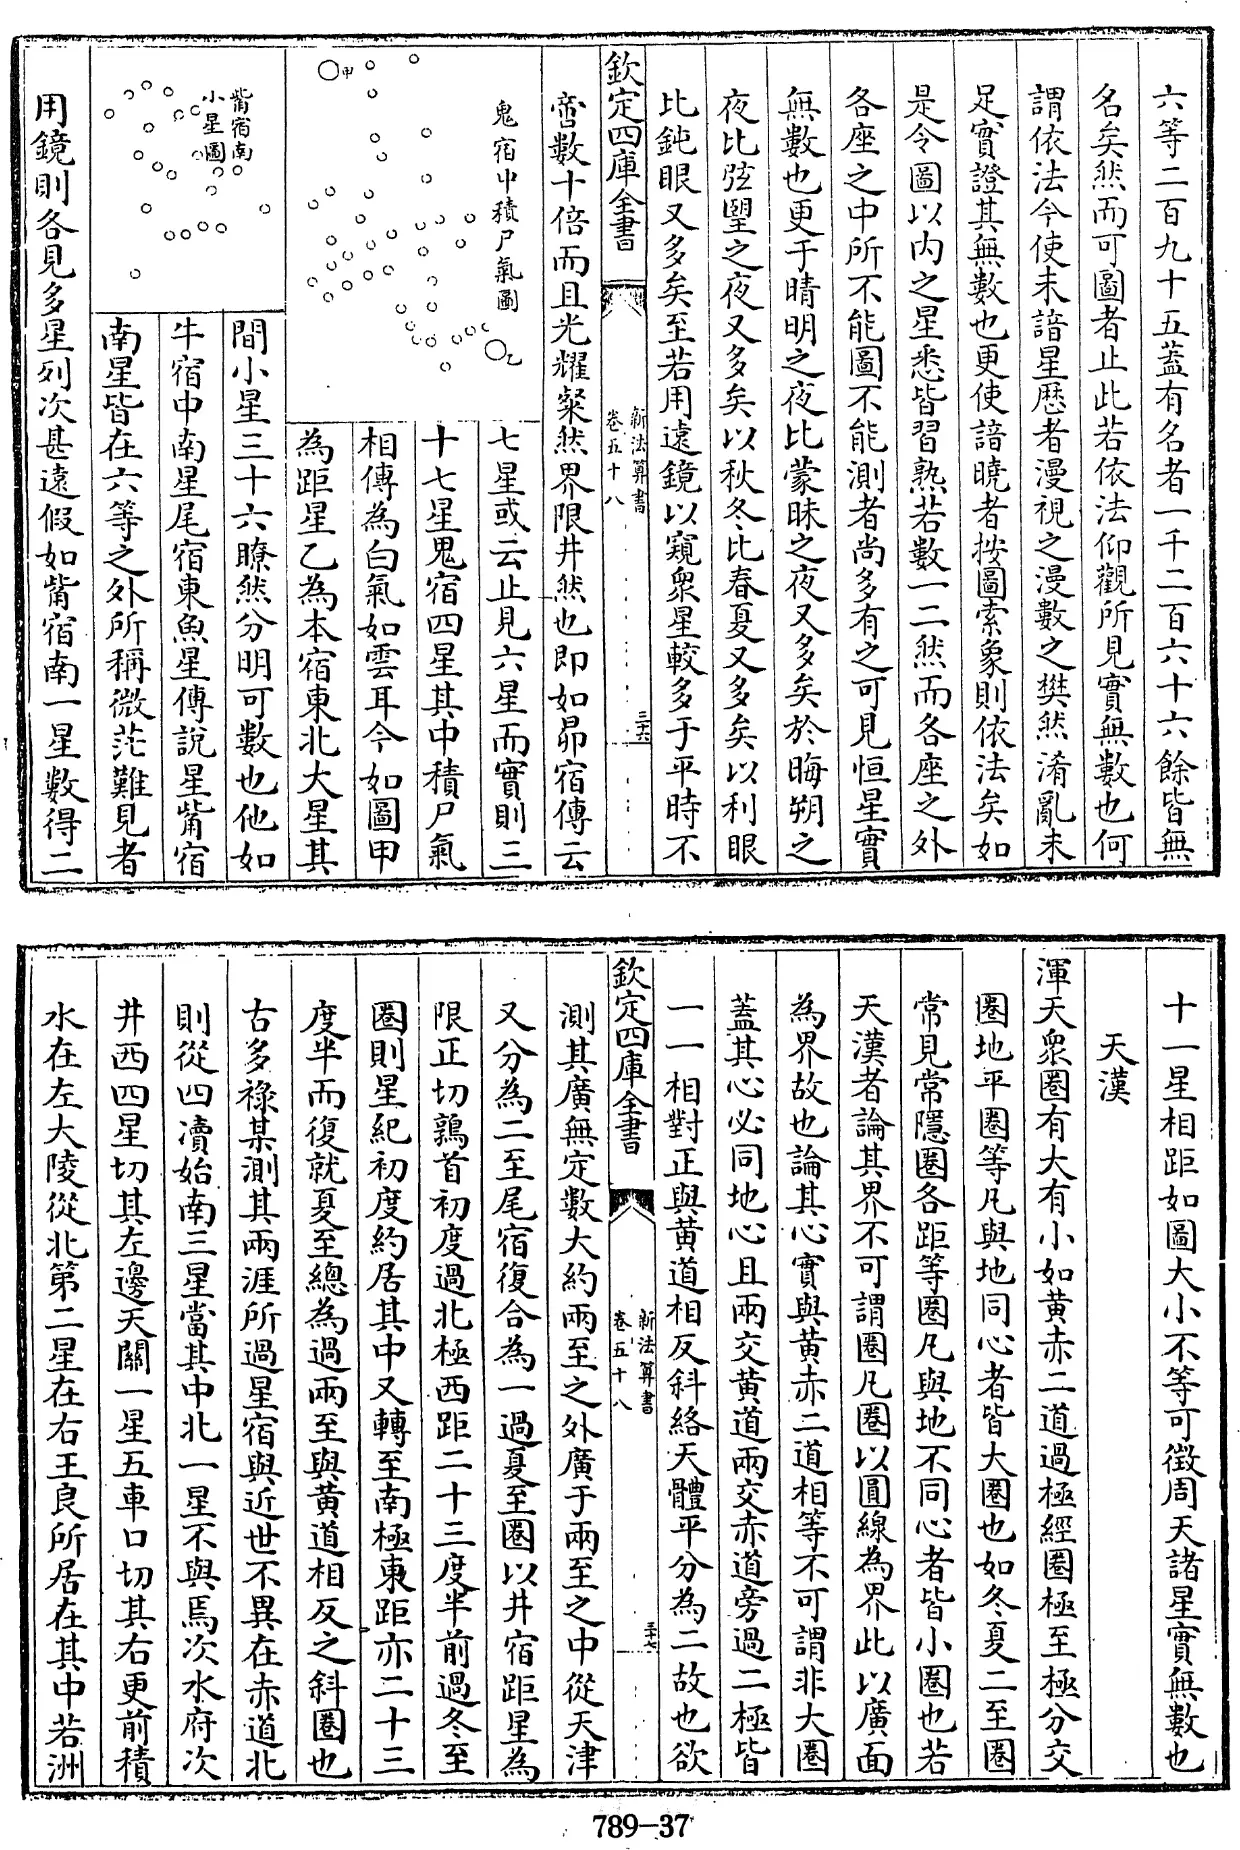 六等二百九十五葢有名者一千二百六十六餘皆無
名矣然而可圖者止此若依法仰觀所見實無數也何
謂依法今使未諳星歴者漫視之漫數之樊然淆亂未
足實證其無數也更使諳曉者按圖索象則依法矣如
是令圖以内之星悉皆習熟若數一二然而各座之外
各座之中所不能圖不能測者尚多有之可見恒星實
無數也更于晴明之夜比蒙昧之夜又多矣於晦朔之
夜比弦朢之夜又多矣以秋冬比春夏又多矣以利眼
比鈍眼又多矣至若用遠鏡以窺衆星較多于平時不
欽定四庫全書
新法算書
卷五十八
三十六
啻數十倍而且光耀粲然界限井然也即如昴宿傳云
鬼宿中積尸氣圖
甲
乙
七星或云止見六星而實則三
十七星鬼宿四星其中積尸氣
相傳為白氣如雲耳今如圖甲
為距星乙為本宿東北大星其
觜宿南
小星圖
間小星三十六瞭然分明可數也他如
牛宿中南星尾宿東魚星傳説星觜宿
南星皆在六等之外所稱微茫難見者
用鏡則各見多星列次甚遠假如觜宿南一星數得二
十一星相距如圖大小不等可徵周天諸星實無數也
天漢
渾天衆圈有大有小如黄赤二道過極經圈極至極分交
圈地平圈等凡與地同心者皆大圈也如冬夏二至圈
常見常隱圈各距等圈凡與地不同心者皆小圈也若
天漢者論其界不可謂圈凡圈以圓線為界此以廣面
為界故也論其心實與黄赤二道相等不可謂非大圈
蓋其心必同地心且兩交黄道兩交赤道旁過二極皆
一一相對正與黄道相反斜絡天體平分為二故也欲
欽定四庫全書
新法算書
卷五十八
三十七
測其廣無定數大約兩至之外廣于兩至之中從天津
又分為二至尾宿復合為一過夏至圈以井宿距星為
限正切鶉首初度過北極西距二十三度半前過冬至
圈則星紀初度約居其中又轉至南極東距亦二十三
度半而復就夏至總為過兩至與黄道相反之斜圈也
古多禄某測其兩涯所過星宿與近世不異在赤道北
則從四瀆始南三星當其中北一星不與焉次水府次
井西四星切其左邊天關一星五車口切其右更前積
水在左大陵從北第二星在右王良所居在其中若洲
789-37